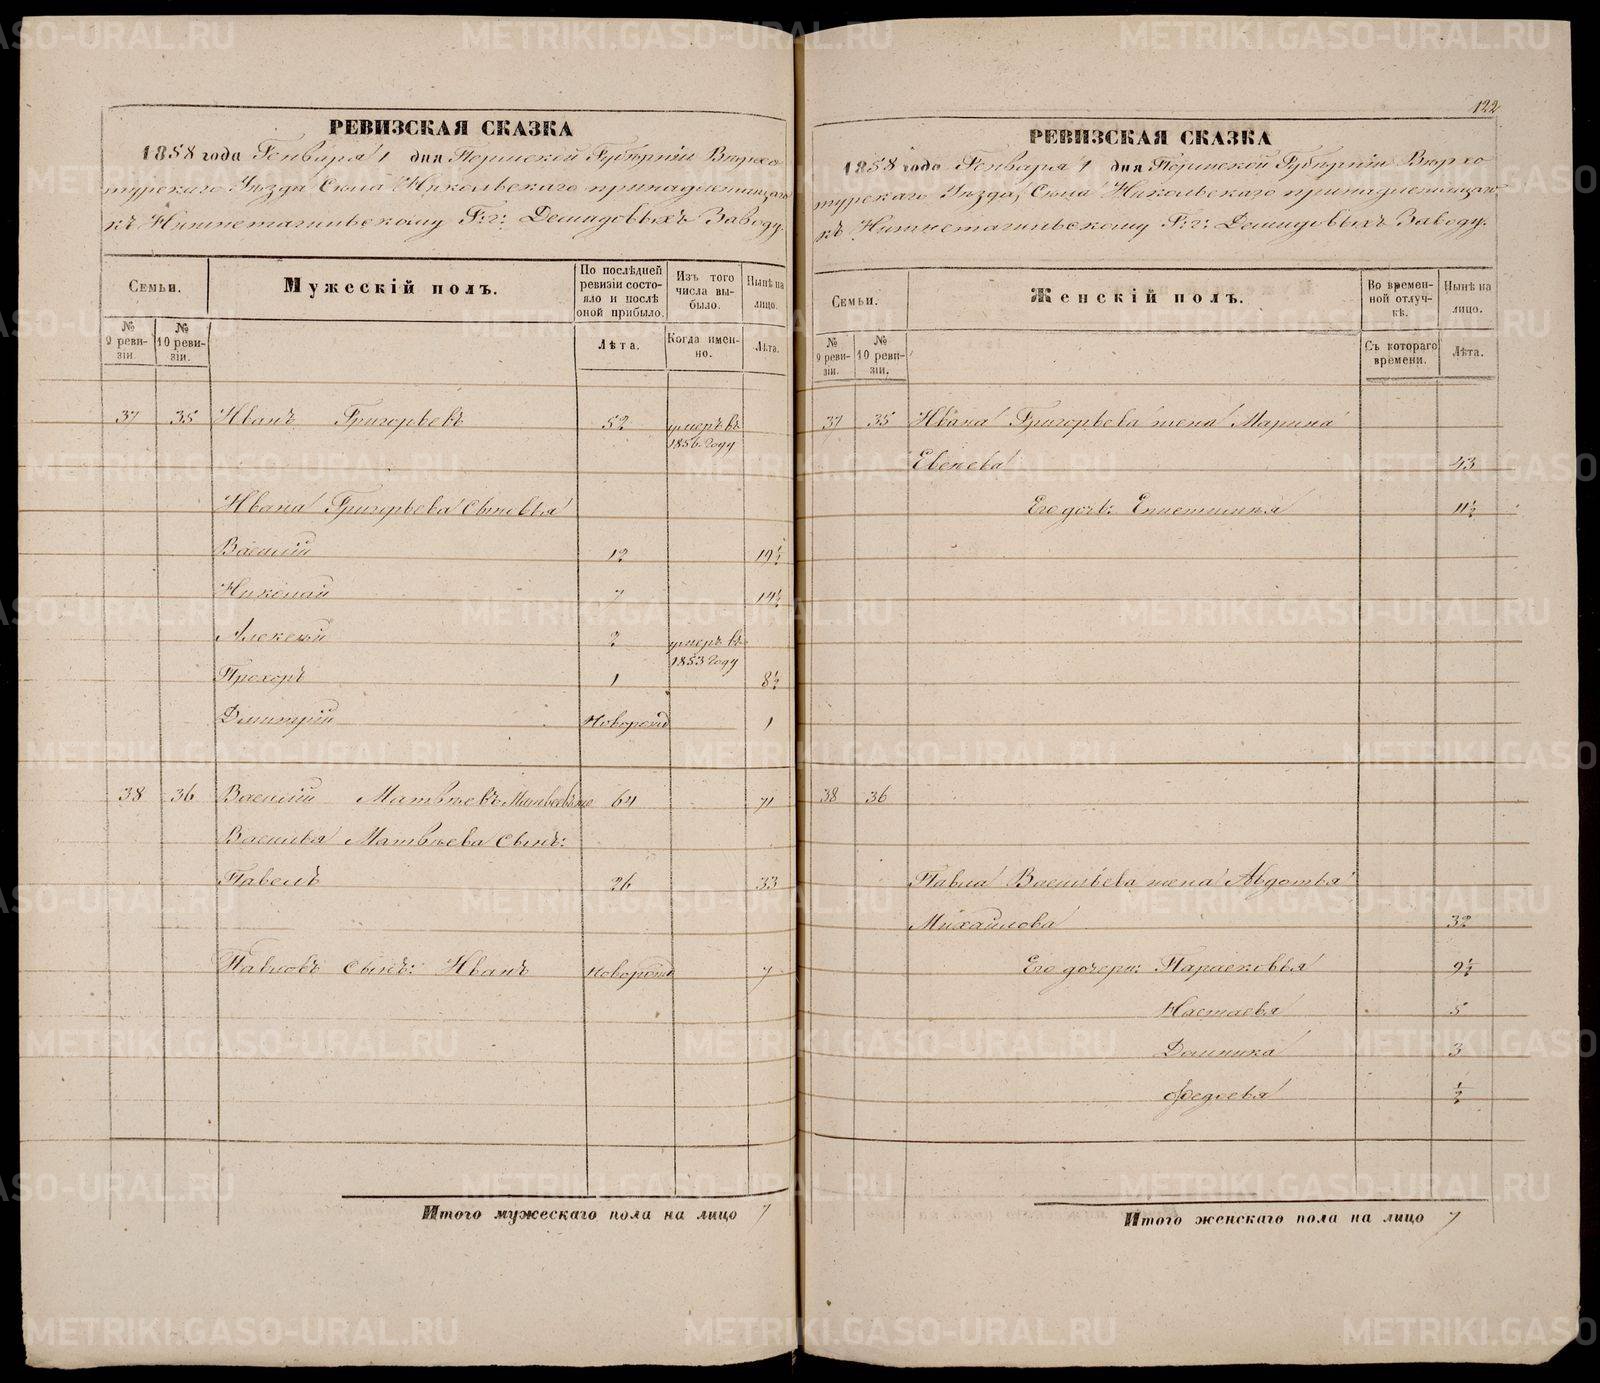 РЕВИЗСКАЯ СКАЗКА
1858 года Генваря 1 дня Пермской Губерніи Верхо
турскаго Уѣзда Села Никольскаго принадлежащаго
къ Нижнетагильскому Г: г: Демидовыхъ Заводу.
Семьи.
Мужескій полъ.
По послѣдней ревизіи состояло и послѣ оной прибыло.
Изъ того числа выбыло.
Нынѣ на лицо.
№ 9 ревизіи.
№ 10 ревизіи.
Лѣта.
Когда именно.
Лѣта.
37 35 Иванъ Григорьевъ 52 умеръ въ
1856 году
Ивана Григорьева сыновья
Василій 12 19½
Николай 7 14½
Алексѣй 2 умеръ въ
1853 году
Прохоръ 1 8½
Дмитрій Новорожд 1
38 36 Василій Матвѣевъ 64 71
Василья Матвѣева сынъ:
Павелъ 26 33
Павловъ сынъ: Иванъ новорожд 7
Итого мужескаго пола на лицо 7
122
РЕВИЗСКАЯ СКАЗКА
1858 года Генваря 1 дня Пермской Губерніи Верхо
турскаго Уѣзда, Села Никольскаго принадлежащаго
къ Нижнетагильскому Г: г: Демидовыхъ Заводу.
Семьи.
Женскій полъ.
Во временной отлучкѣ.
Нынѣ на лицо.
№ 9 ревизіи.
№ 10 ревизіи.
Съ котораго времени.
Лѣта.
37 35 Ивана Григорьева жена Марина
43
Его дочь: Епистимія 11½
38 36
Павла Васильева жена Авдотья
Михайлова 32
Его дочери: Парасковья 9½
Настасья 5
Домника 3
Федосья ½
Итого женскаго пола на лицо 7
METRIKI.GASO-URAL.RU